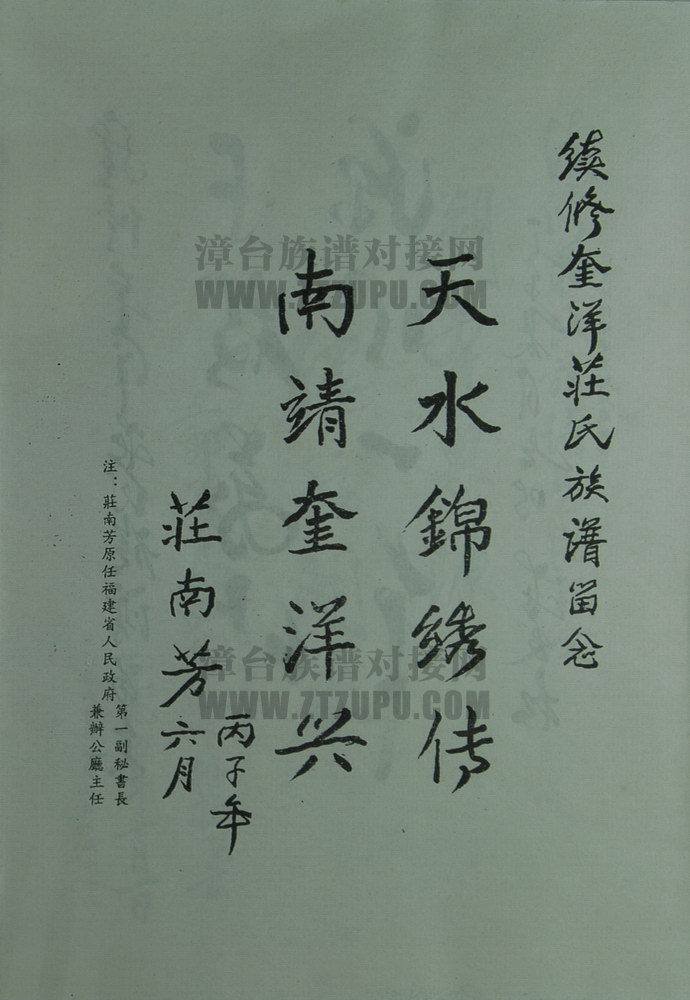 續修奎洋莊氏族譜留念
天水錦綉传
南靖奎洋兴
莊南芳
丙子年
六月
注：莊南芳原任福建省人民政府第一副秘書長
兼辦公廳主任
漳台族谱对接网
WWW.ZTZUPU.COM
漳台族谱对接网
WWW.ZTZUPU.COM